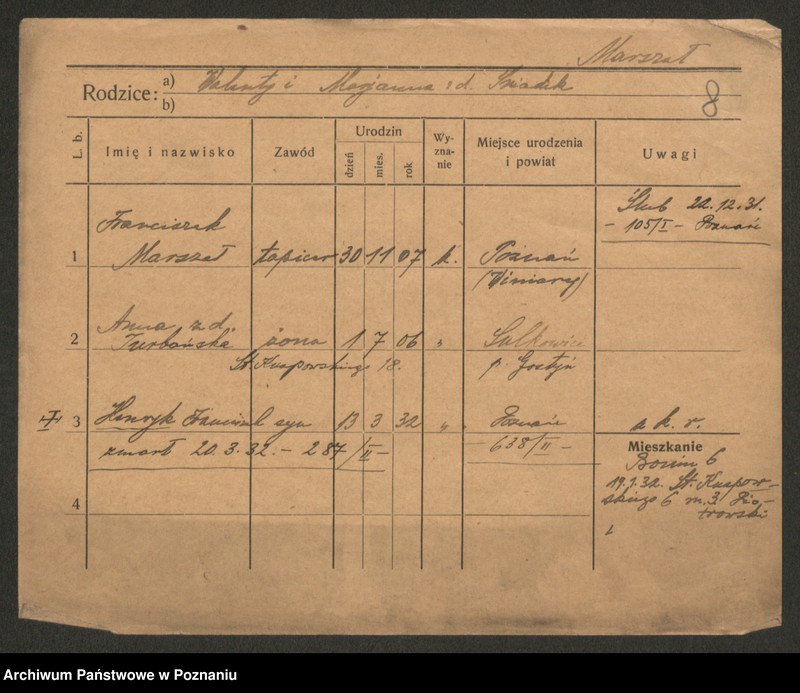 Marszał
Rodzice: a) Walenty i Marjanna z d. Śniadek
b)
8
L. b.
Imię i nazwisko
Zawód
Urodzin
dzień
mies.
rok
Wy-
zna-
nie
Miejsce urodzenia
i powiat
Uwagi
Ślub 22.12.31.
- 105/I - Poznań
Franciszek
1 Marszał tapicer 30 11 07 k. Poznań
(Winiary)
Anna z d.
2 Turbańska żona 1 7 06 " Sulkowice
St. Knapowskiego 18. p. Gostyń
3 Henryk Franciszek syn 13 3 32 " Poznań
zmarł 20.3.32. - 287/II - - 638/II -
s. k. r.
Mieszkanie
Bonin 6
19.1.32. St. Knapow-
skiego 6 m. 3. Pio-
trowski
4
Archiwum Państwowe w Poznaniu